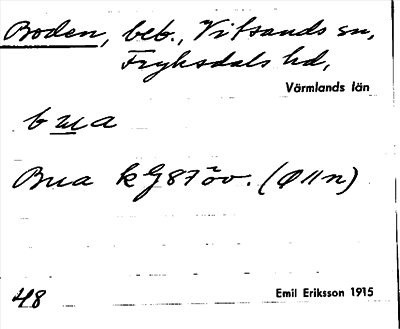 Boden, beb., Vitsands sn,
Fryksdals hd,
Värmlands län
bua
Bua k G87 öv. (Ø11n)
48
Emil Eriksson 1915